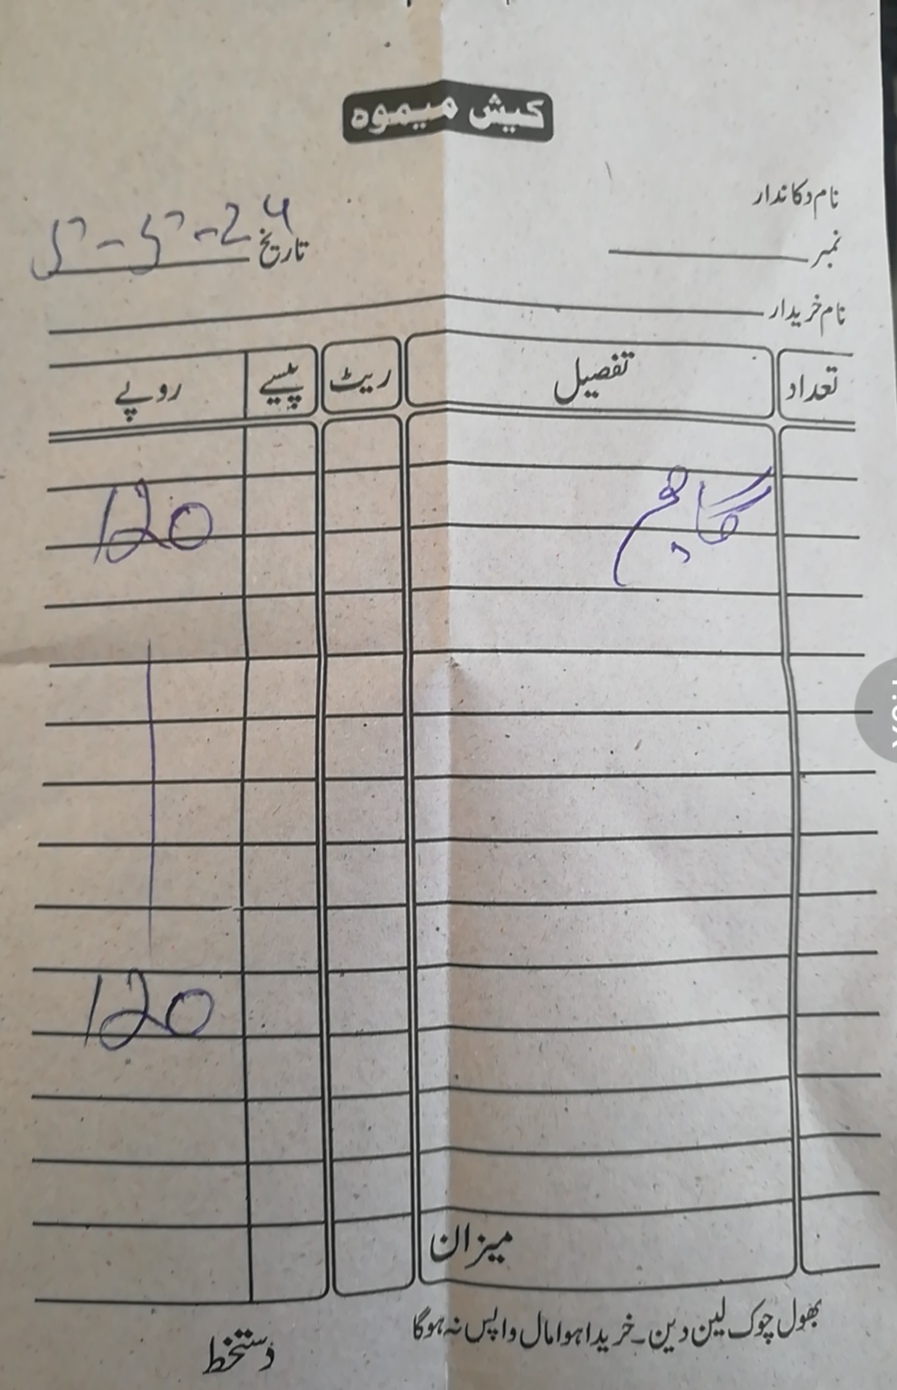 کیش میمو
نام دکاندار
نمبر
تاریخ 5-5-24
نام خریدار
تعداد تفصیل ریٹ پیسے روپے
120
120
میزان
بھول چوک لین دین۔ خریدا ہوا مال واپس نہ ہوگا
دستخط